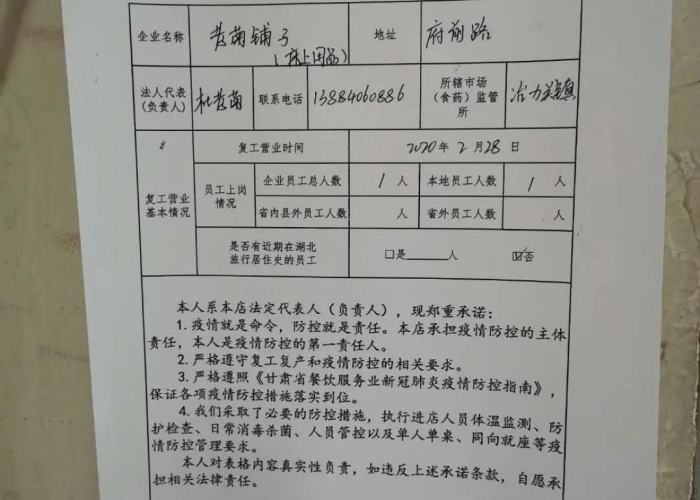 企业名称 地址 府前路
(床上用品)
法人代表 (负责人) 联系电话 13884060886 所辖市场 (食药)监管 所
复工营业时间 2020年2月28日
复工营业 基本情况 员工上岗 情况 企业员工总人数 1人 本地员工人数 1人
省内县外员工人数 人 省外员工人数 人
是否有近期在湖北 旅行居住史的员工 □是 人 ☑否
本人系本店法定代表人(负责人),现郑重承诺:
1.疫情就是命令,防控就是责任。本店承担疫情防控的主体
责任,本人是疫情防控的第一责任人。
2.严格遵守复工复产和疫情防控的相关要求。
3.严格遵照《甘肃省餐饮服务业新冠肺炎疫情防控指南》,
保证各项疫情防控措施落实到位。
4.我们采取了必要的防控措施,执行进店人员体温监测、防
护检查、日常消毒杀菌、人员管控以及单人单桌、同向就座等疫
情防控管理要求。
本人对表格内容真实性负责,如违反上述承诺条款,自愿承
担相关法律责任。